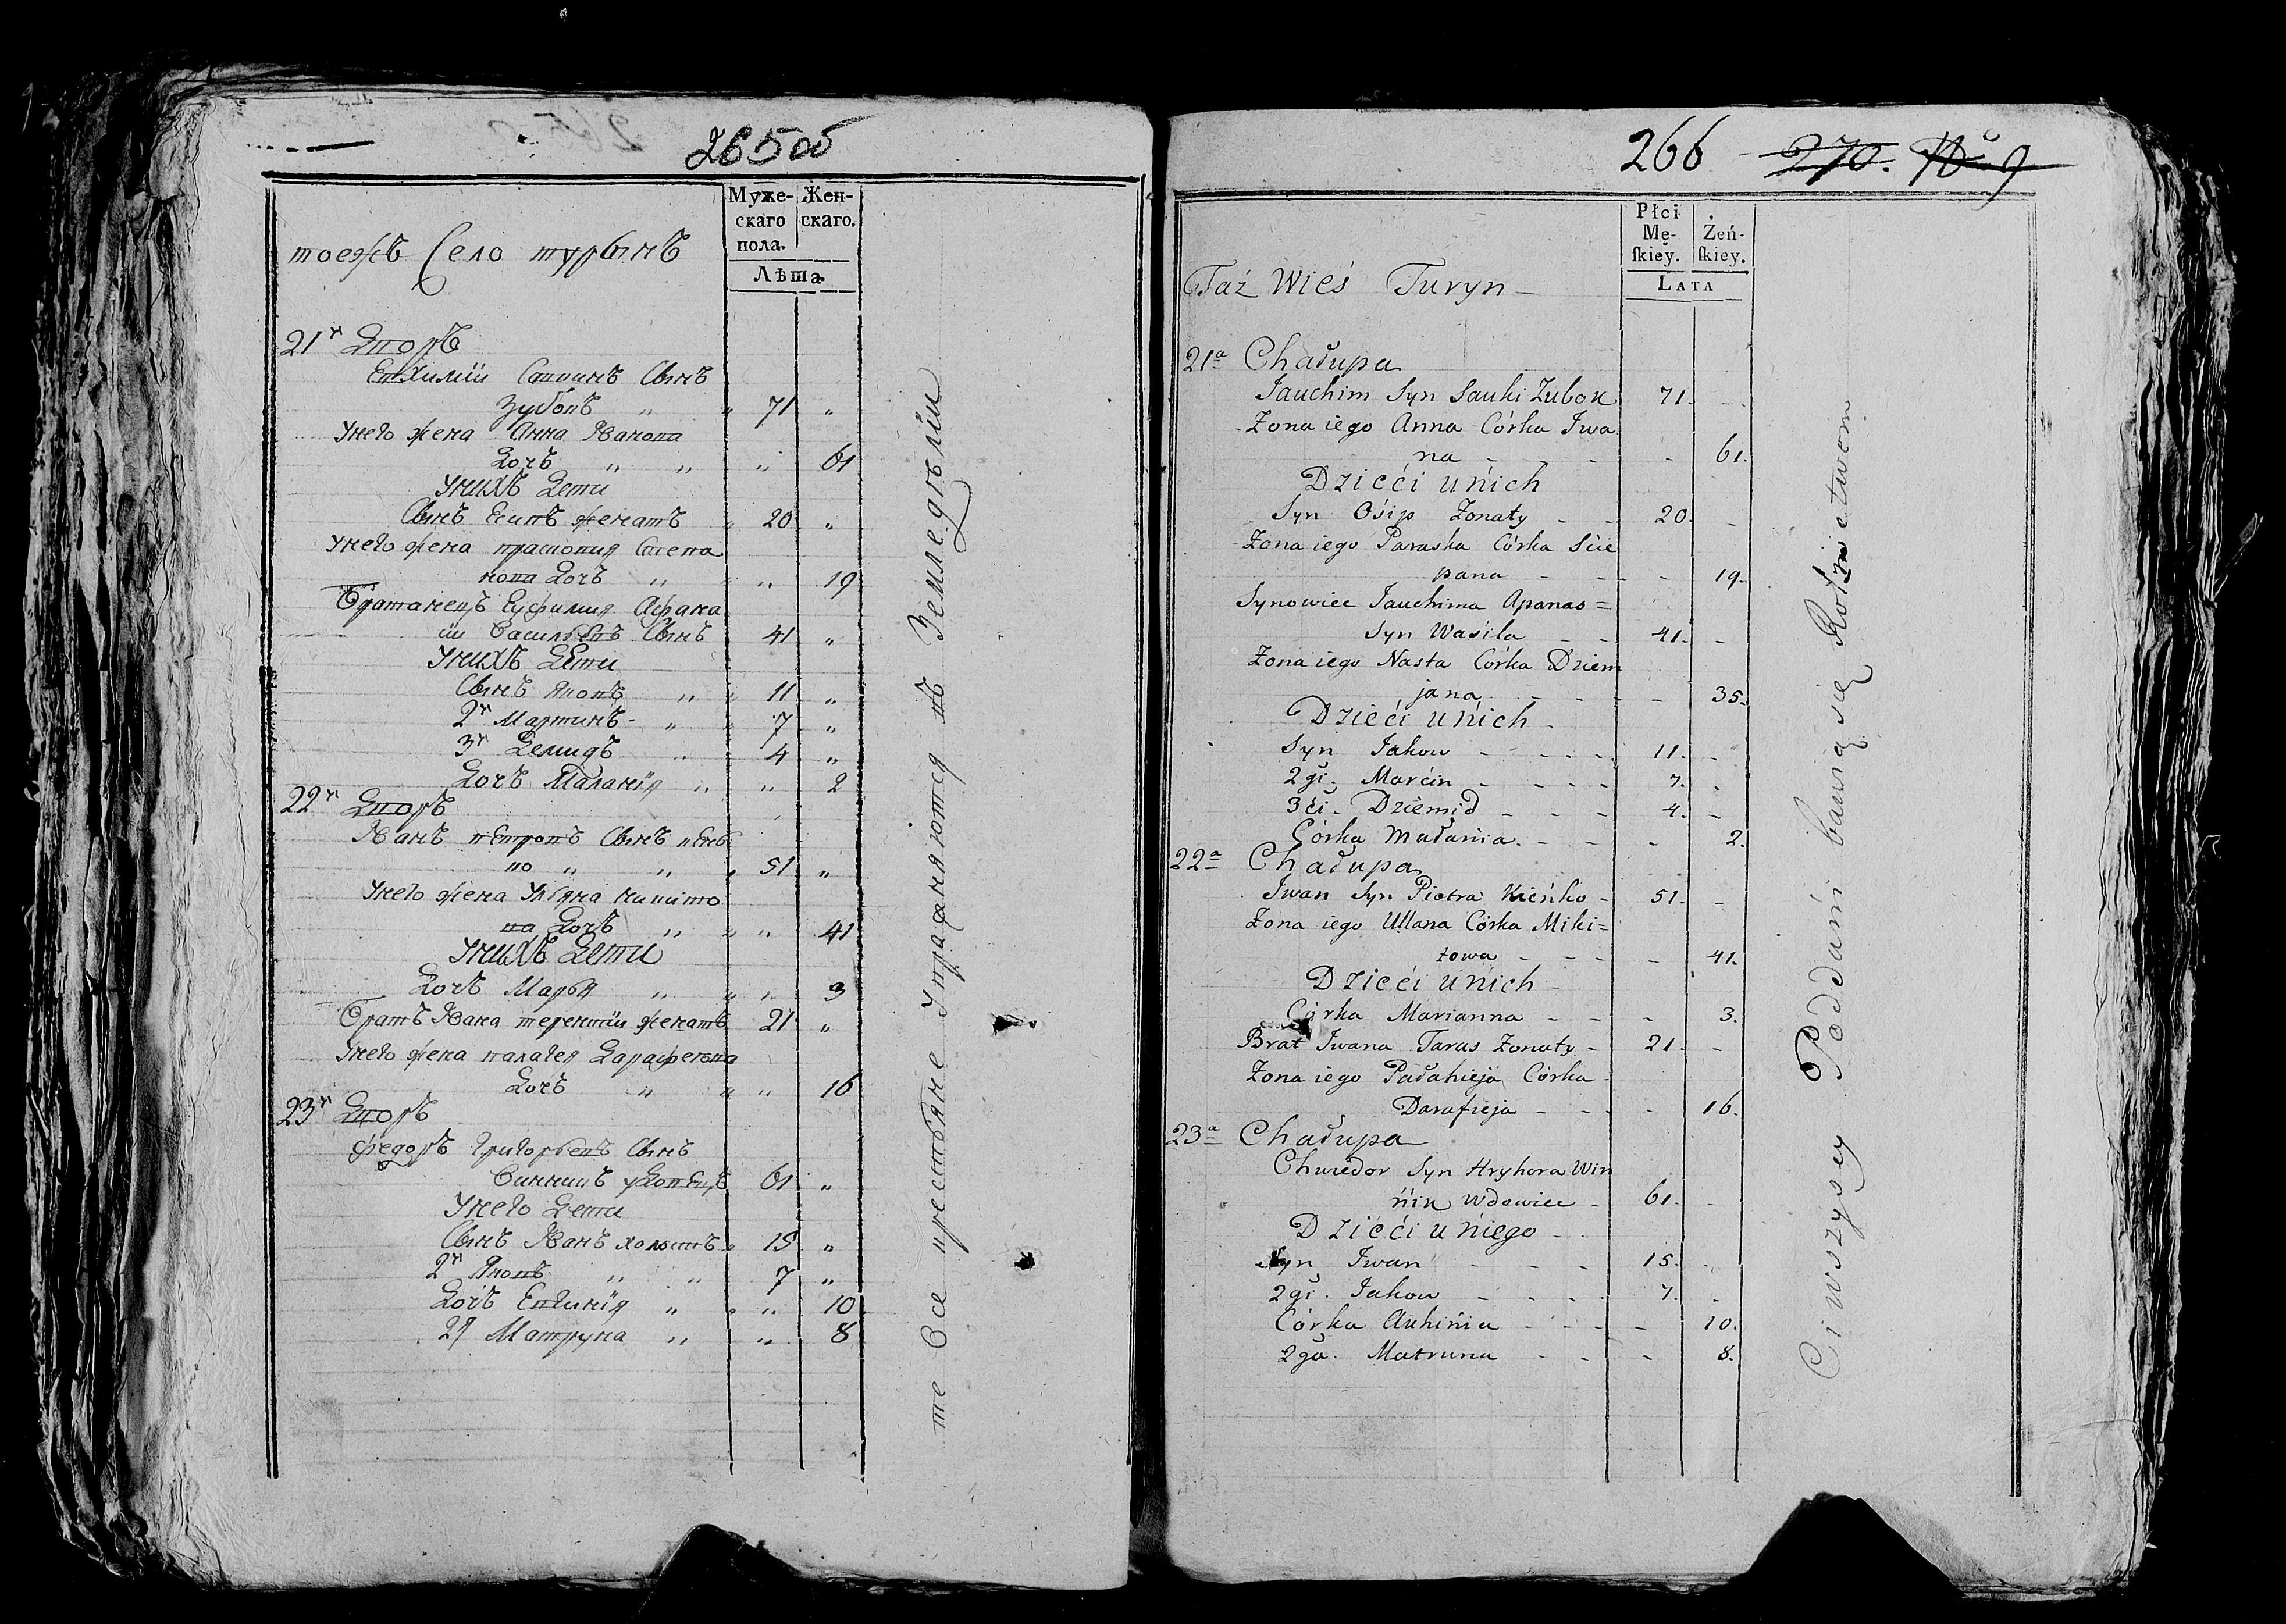 265об
Муже-
скаго
пола.
Жен-
скаго.
Лѣта.
тоежъ Село турынъ
21й Дворъ
Евхимій Савинъ Сынъ
Зубовъ " " 71 "
Унего жена Анна Иванова
Дочъ " " " 61
Унихъ Дети
Сынъ Есипъ женатъ " 20 "
Унего жена прасковия Степа
нова Дочъ " " " 19
Братанецъ Еуфимия Афана
сiй Васильевъ Сынъ 41 "
Унихъ Дети
Сынъ Яковъ " " 11 "
2й Мартинъ " " 7 "
3й Демидъ " 4 "
Дочъ Маланiя " " 2
22й Дворъ
Иванъ петровъ Сынъ кень
ко " " " 51 "
Унего жена Ульяна никито
ва Дочъ " " " 41
Унихъ Дети
Дочъ Марья " " " 3
Братъ Ивана терентiй женатъ 21 "
Унего жена палагея Дарафеева
Дочъ " " " 16
23й Дворъ
федоръ Григорьевъ Сынъ
Винникъ удовецъ 61 "
Унего Дети
Сынъ Иванъ холостъ " 15 "
2й Яковъ " " 7 "
Дочъ Евгинiя " " " 10
2я Матруна " " 8
те Все крестьяне Упражняются въ Земледѣлiи
266 270. 9
Płci
Mę-
skiey.
Żeń-
skiey.
LATA
Taż Wieś Turyn
21a Chałupa
Jauchim Syn Sauki Zubok 71. -
Żona iego Anna Córka Iwa
na - - - - 61.
Dzieći unich
Syn Ośip Żonaty - - 20. -
Żona iego Paraska Córka Scie
pana - - - - 19.
Synowiec Jauchima Apanas=
Syn Waśila - - 41. -
Żona iego Nasta Córka Dziem
jana - - - - 35.
Dzieći unich
Syn Jakow - - - - 11. -
2gi. Marćin - - - - 7. -
3ći. Dziemid - - - 4. -
Córka Małania. - - - 2.
22a Chałupa
Iwan Syn Piotra Kieńko - 51. -
Żona iego Ullana Córka Miki=
towa - - - - 41.
Dzieći unich
Córka Marianna - - - 3.
Brat Iwana Taras Żonaty - 21. -
Żona iego Pałahieja Córka
Darafieja - - - - 16.
23a Chałupa
Chwiedor Syn Hryhora Win
ńik Wdowiec - 61. -
Dzieći u niego
Syn Iwan - - - 15. -
2gi. Jakow - - - - 7. -
Córka Auhinia - - - - 10.
2ga. Matruna - - - 8.
Ci wszyscy Poddani bawią się Rolnictwem